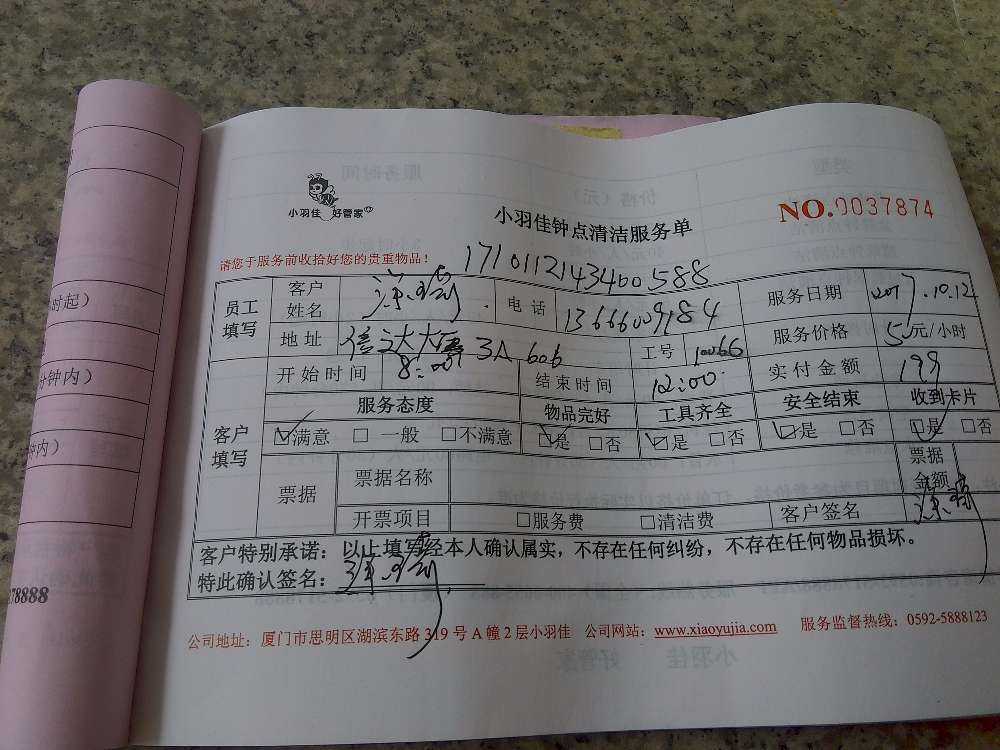 小羽佳 好管家
小羽佳钟点清洁服务单
NO.0037874
请您于服务前收拾好您的贵重物品！
171011214340 0588
员工填写 客户姓名 电话 13666009184 服务日期 2017.10.12
地址 信达大厦 3A 606 工号 10066 服务价格 50元/小时
开始时间 8:00 结束时间 12:00 实付金额 199
客户填写 服务态度 物品完好 工具齐全 安全结束 收到卡片
☑满意 □一般 □不满意 ☑是 □否 ☑是 □否 ☑是 □否 ☑是 □否
票据 票据名称 票据金额
开票项目 □服务费 □清洁费 客户签名
客户特别承诺：以上填写经本人确认属实，不存在任何纠纷，不存在任何物品损坏。
特此确认签名：
公司地址：厦门市思明区湖滨东路319号A幢2层小羽佳 公司网站：www.xiaoyujia.com 服务监督热线：0592-5888123
时起）
分钟内）
钟内）
78888